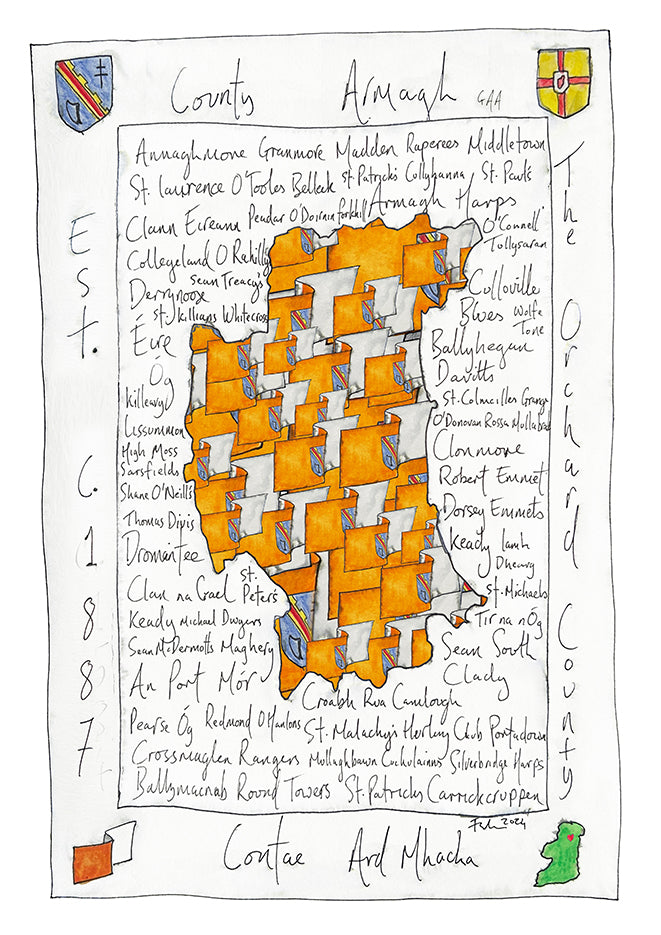 County Armagh GAA
Annaghmore Granmore Madden Raperees Middletown
St. Lawrence O'Tooles Belleek St. Patrick's Cullyhanna St. Paul's
Clann Eireann Peadar O'Doirnin Forkhill Armagh Harps
O'Connell Tullysaran
Collegeland O Rahilly
Sean Treacys
Derrynoose
St. Killeans Whitecross
Éire
Óg
Killeavy
Lissummon
High Moss
Sarsfields
Shane O'Neill's
Thomas Davis
Dromintee
Clan na Gael St. Peter's
Keady Michael Dwyers
Sean McDermotts Maghery
An Port Mór
Culloville
Blues Wolfe
Tone
Ballyhegan
Davitts
St. Colmcilles Grange
O'Donovan Rossa Mullabrack
Clonmore
Robert Emmet
Dorsey Emmets
Keady Lamh
Dhearg
St. Michaels
Tir na nÓg
Sean South
Clady
Craobh Rua Camlough
Pearse Óg Redmond O'Hanlons St. Malachy's Hurley Club Portadown
Crossmaglen Rangers Mullaghbawn Cuchulainns Silverbridge Harps
Ballymacnab Round Towers St. Patricks Carrickcruppen
2024
Est. C. 1887
The Orchard County
Contae Ard Mhacha